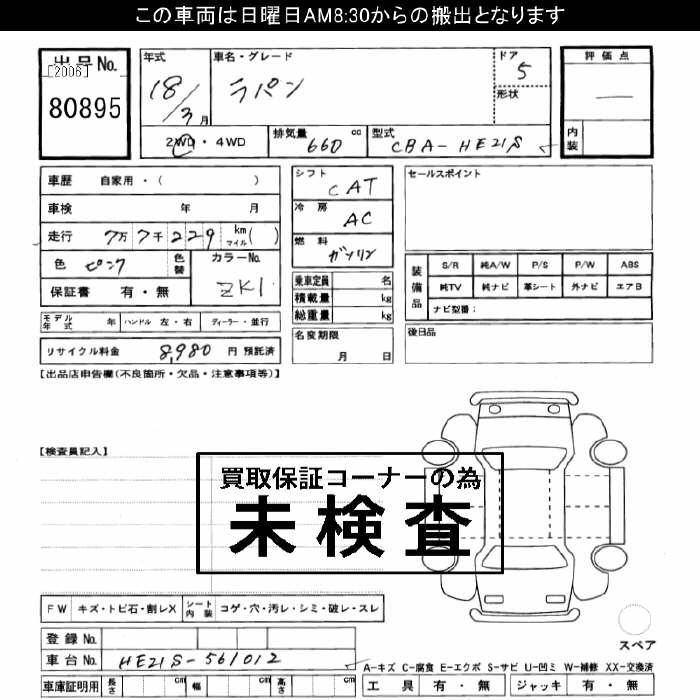 この車両は日曜日AM8:30からの搬出となります
出品No.
[2006]
80895
年式
18/3月
車名・グレード
ラパン
ドア
5
形状
評価点
—
内装
2WD・4WD
排気量 660 cc
型式 CBA-HE21S
車歴 自家用・( )
車検 年 月
走行 7万7千229 km マイル( )
色 ピンク
色替
カラーNo.
ZK1
保証書 有・無
モデル年式 年
ハンドル 左・右
ディーラー・並行
リサイクル料金 8,980 円 預託済
シフト
CAT
冷房
AC
燃料
ガソリン
乗車定員 名
積載量 kg
総重量 kg
名変期限
月 日
セールスポイント
装備品
S/R 純A/W P/S P/W ABS
純TV 純ナビ 革シート 外ナビ エアB
ナビ型番:
後日品
【出品店申告欄(不良箇所・欠品・注意事項等)】
【検査員記入】
買取保証コーナーの為
未検査
FW キズ・トビ石・割レX
シート内装 コゲ・穴・汚レ・シミ・破レ・スレ
登録No.
車台No. HE21S-561012
車庫証明用 長さ cm 幅 cm 高さ cm
スペア
A-キズ C-腐食 E-エクボ S-サビ U-凹ミ W-補修 XX-交換済
工具 有・無
ジャッキ 有・無